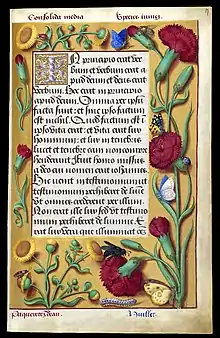 Consolida media Species iunij
In principio erat ver
bum et verbum erat a
pud deum et deus erat
verbum. Hoc erat in principio
apud deum. Omnia per ipsum
facta sunt et sine ipso factum
est nichil. Quod factum est in
ipso vita erat: et vita erat lux
hominum: et lux in tenebris
lucet et tenebre eam non compre
henderunt. Fuit homo missus
a deo cui nomen erat iohannes.
Hic venit in testimonium ut
testimonium perhiberet de lumi
ne ut omnes crederent per illum.
Non erat ille lux sed ut testimo
nium perhiberet de lumine. E
rat lux vera que illuminat om